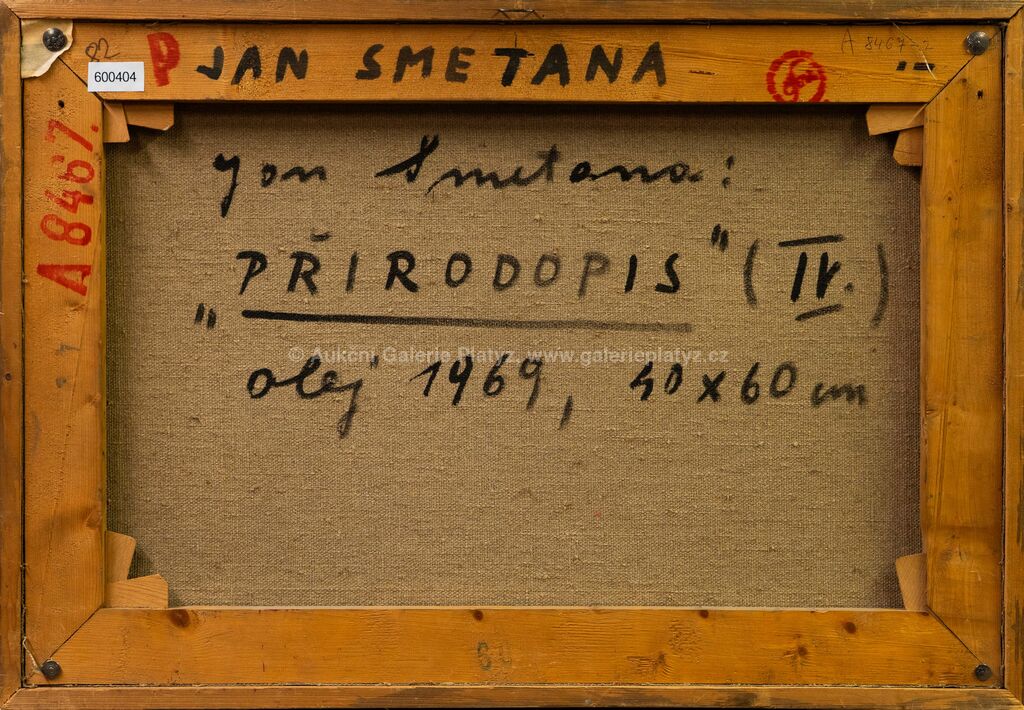 P JAN SMETANA
600404
A 8467-2
A 8467.
Jan Smetana:
„PŘIRODOPIS" (IV.)
© Aukční Galerie Platýz, www.galerieplatyz.cz
olej 1969, 40x60 cm